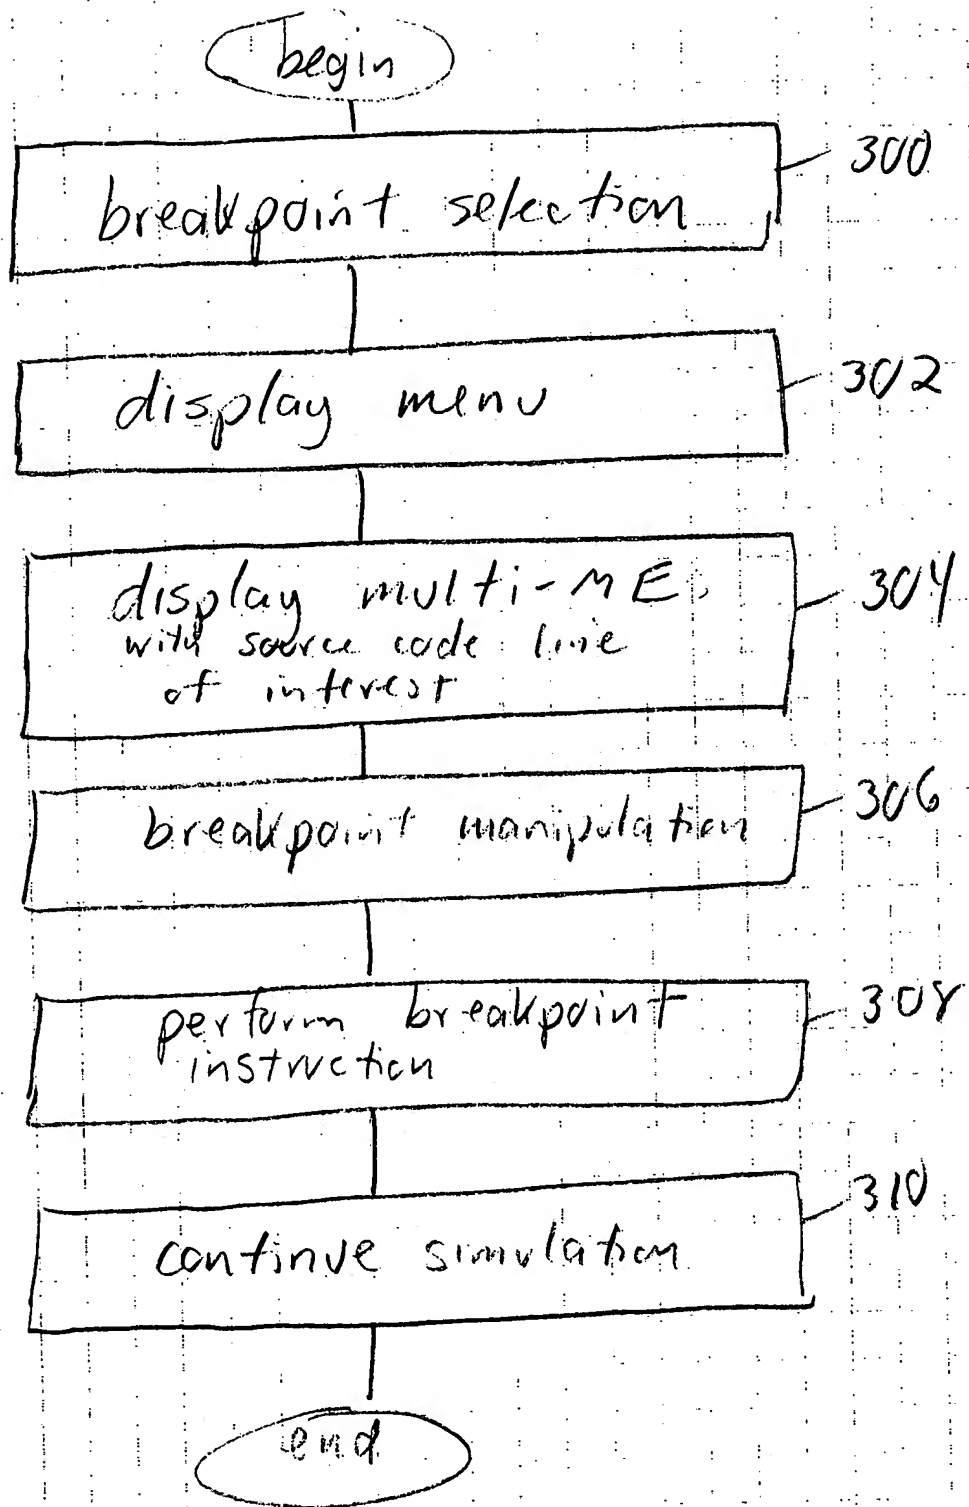 begin
300
breakpoint selection
302
display menu
304
display multi-ME
with source code line
of interest
306
breakpoint manipulation
308
perform breakpoint
instruction
310
continue simulation
end